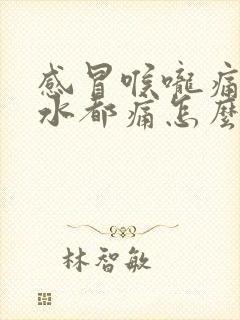 感冒喉嚨痛
水都痛怎麼
林智敏